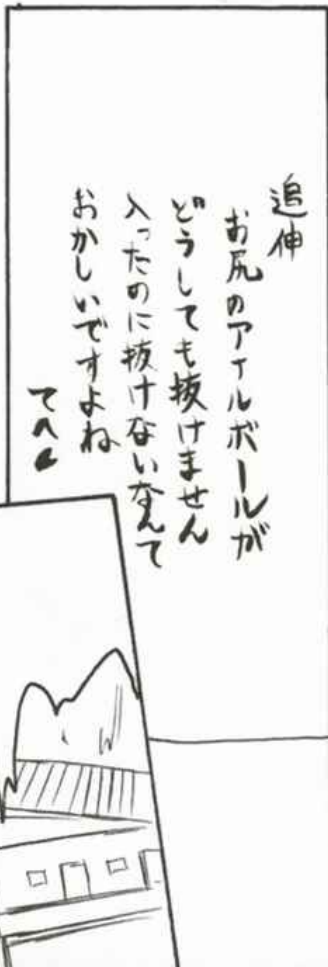 追伸
お尻のアナルボールが
どうしても抜けません
入ったのに抜けないなんて
おかしいですよね
てへ